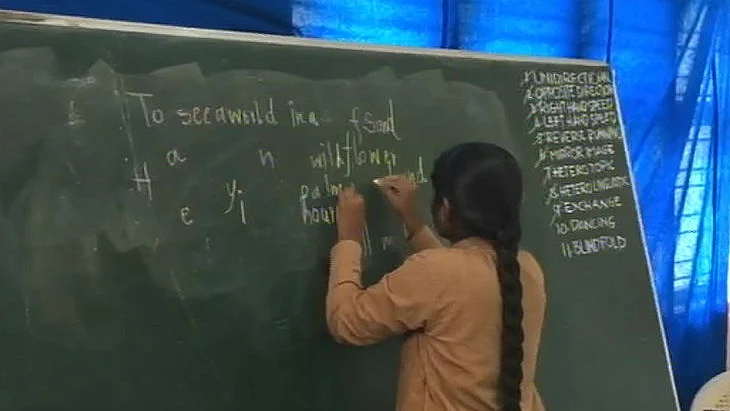 To see a world in a f Sand
a n wildflower
H palm nd
e yi hour
m
1 UNIDIRECTIONAL
2 OPPOSITE DIRECTION
3 RIGHT HAND SPEED
4 LEFT HAND SPEED
5 REVERSE RUNNING
6 MIRROR IMAGE
7 HETEROTOPIC
8 HETERO LINGUISTIC
9 EXCHANGE
10 DANCING
11 BLINDFOLD